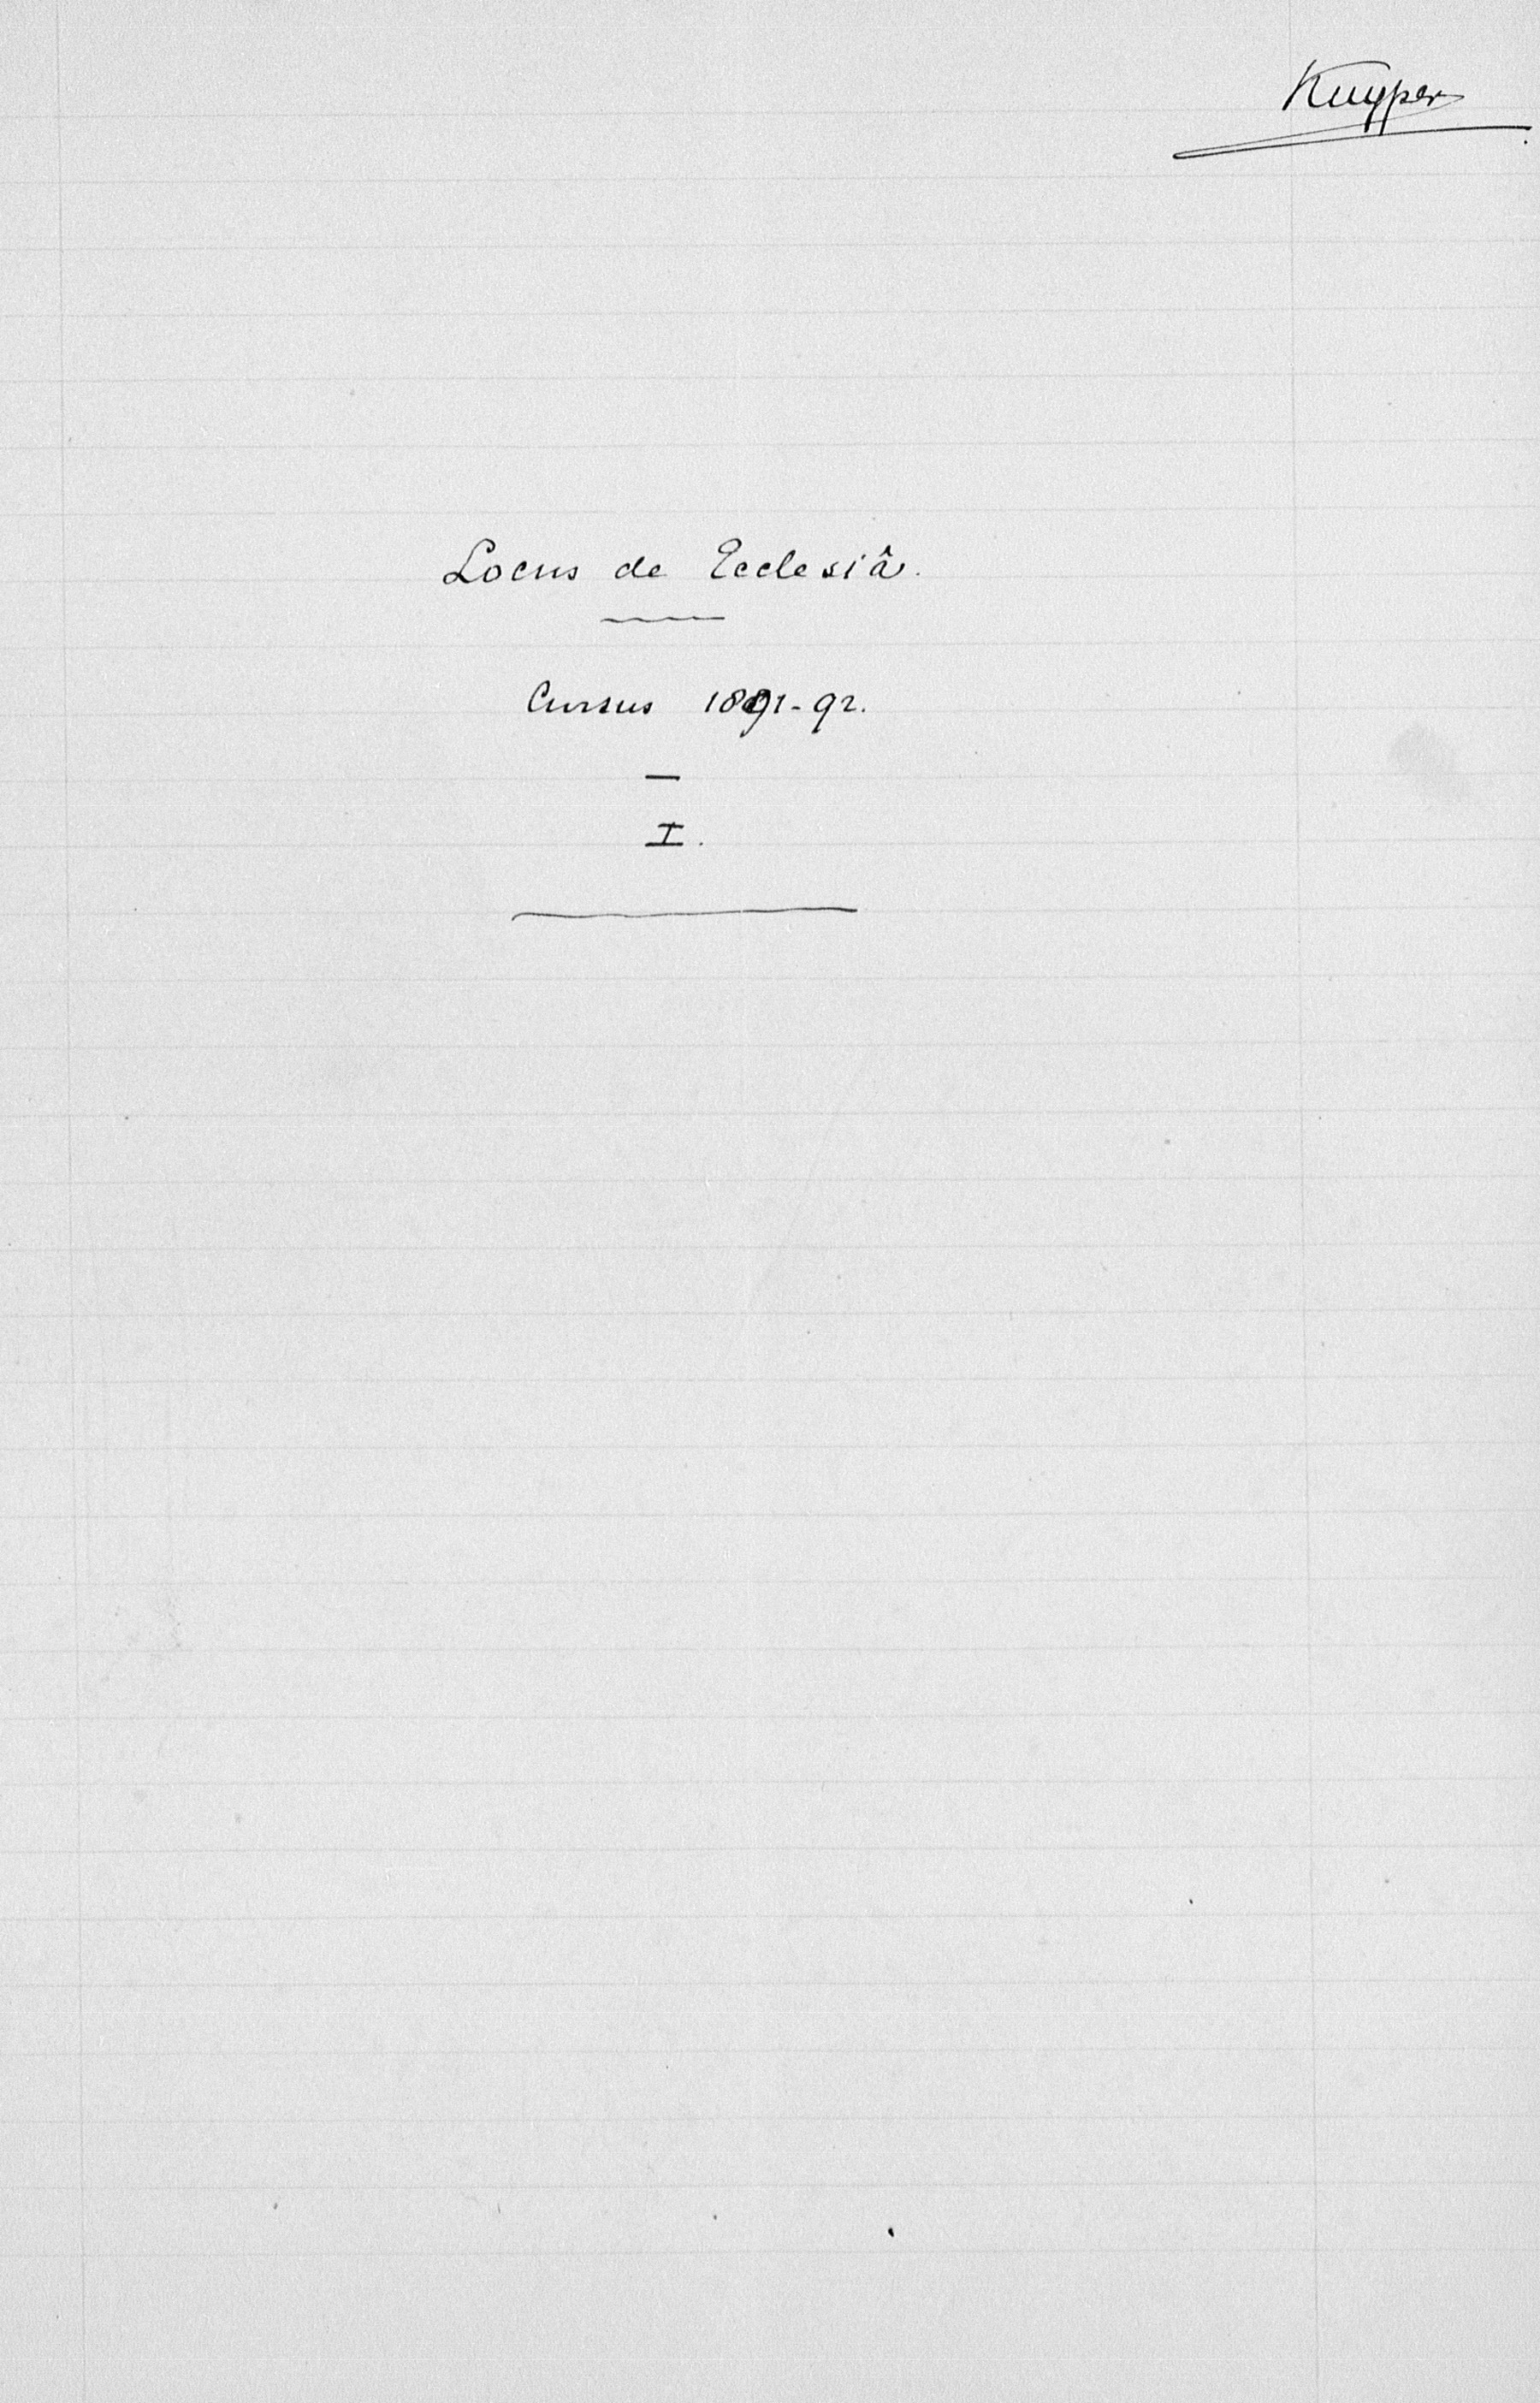 Kuyper
Locus de Ecclesiâ.
Cursus 1891-92.
I.